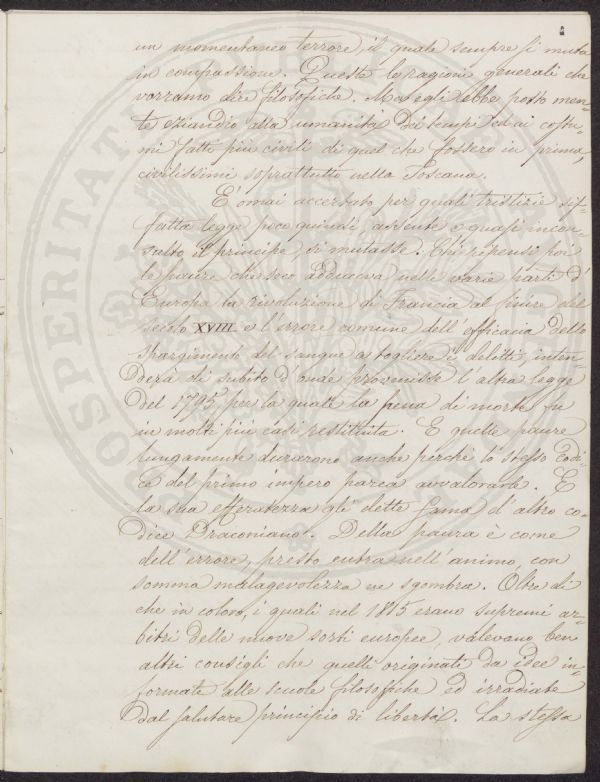 un momentaneo terrore, il quale sempre si muta
in compassione. Queste le ragioni generali che
vorranno dire filosofiche. Ma egli ebbe posto men-
te eziandio alla umanità dei tempi ed ai costu-
mi fatti più civili di quel che fossero in prima,
civilissimi soprattutto nella Toscana.
È omai accertato per quali tristizie sif-
fatta legge poco quindi, assente e quasi incon-
sulto il principe, si mutasse. Chi ripensi poi
le paure che seco adduceva nelle varie parti d'
Europa la rivoluzione di Francia al finire del
secolo XVIII e l'errore comune dell'efficacia dello
spargimento del sangue a togliere i delitti, inten-
derà di subito d'onde provenisse l'altra legge
del 1795 per la quale la pena di morte fu
in molti più casi restituita. E quelle paure
lungamente durarono anche perchè lo stesso Codi-
ce del primo impero parea avvalorarle. E
la sua efferatezza gli dette fama d'altro co-
dice Draconiano. Della paura è come
dell'errore, presto entra nell'animo, con
somma malagevolezza ne sgombra. Oltre di
che in coloro, i quali nel 1815 erano supremi ar-
bitri delle nuove sorti europee, valevano ben
altri consigli che quelli originati da idee in-
formate alle scuole filosofiche ed irradiate
dal salutare principio di libertà. La stessa
PROSPERITATI PUBLICAE